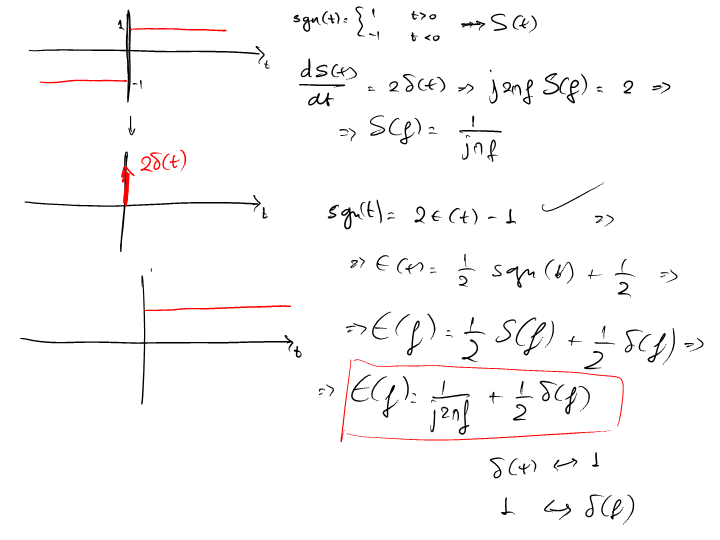 1
t
-1
2δ(t)
t
t
sgn(t) = { 1 t>0 → S(t)
-1 t<0
dS(t)/dt = 2δ(t) ⇒ j2πf S(f) = 2 ⇒
⇒ S(f) = 1/jπf
sgn(t) = 2ϵ(t) - 1 ✓ ⇒
⇒ ϵ(t) = 1/2 sgn(t) + 1/2 ⇒
⇒ ϵ(f) = 1/2 S(f) + 1/2 δ(f) ⇒
⇒ ϵ(f) = 1/j2πf + 1/2 δ(f)
δ(t) ↔ 1
1 ↔ δ(f)